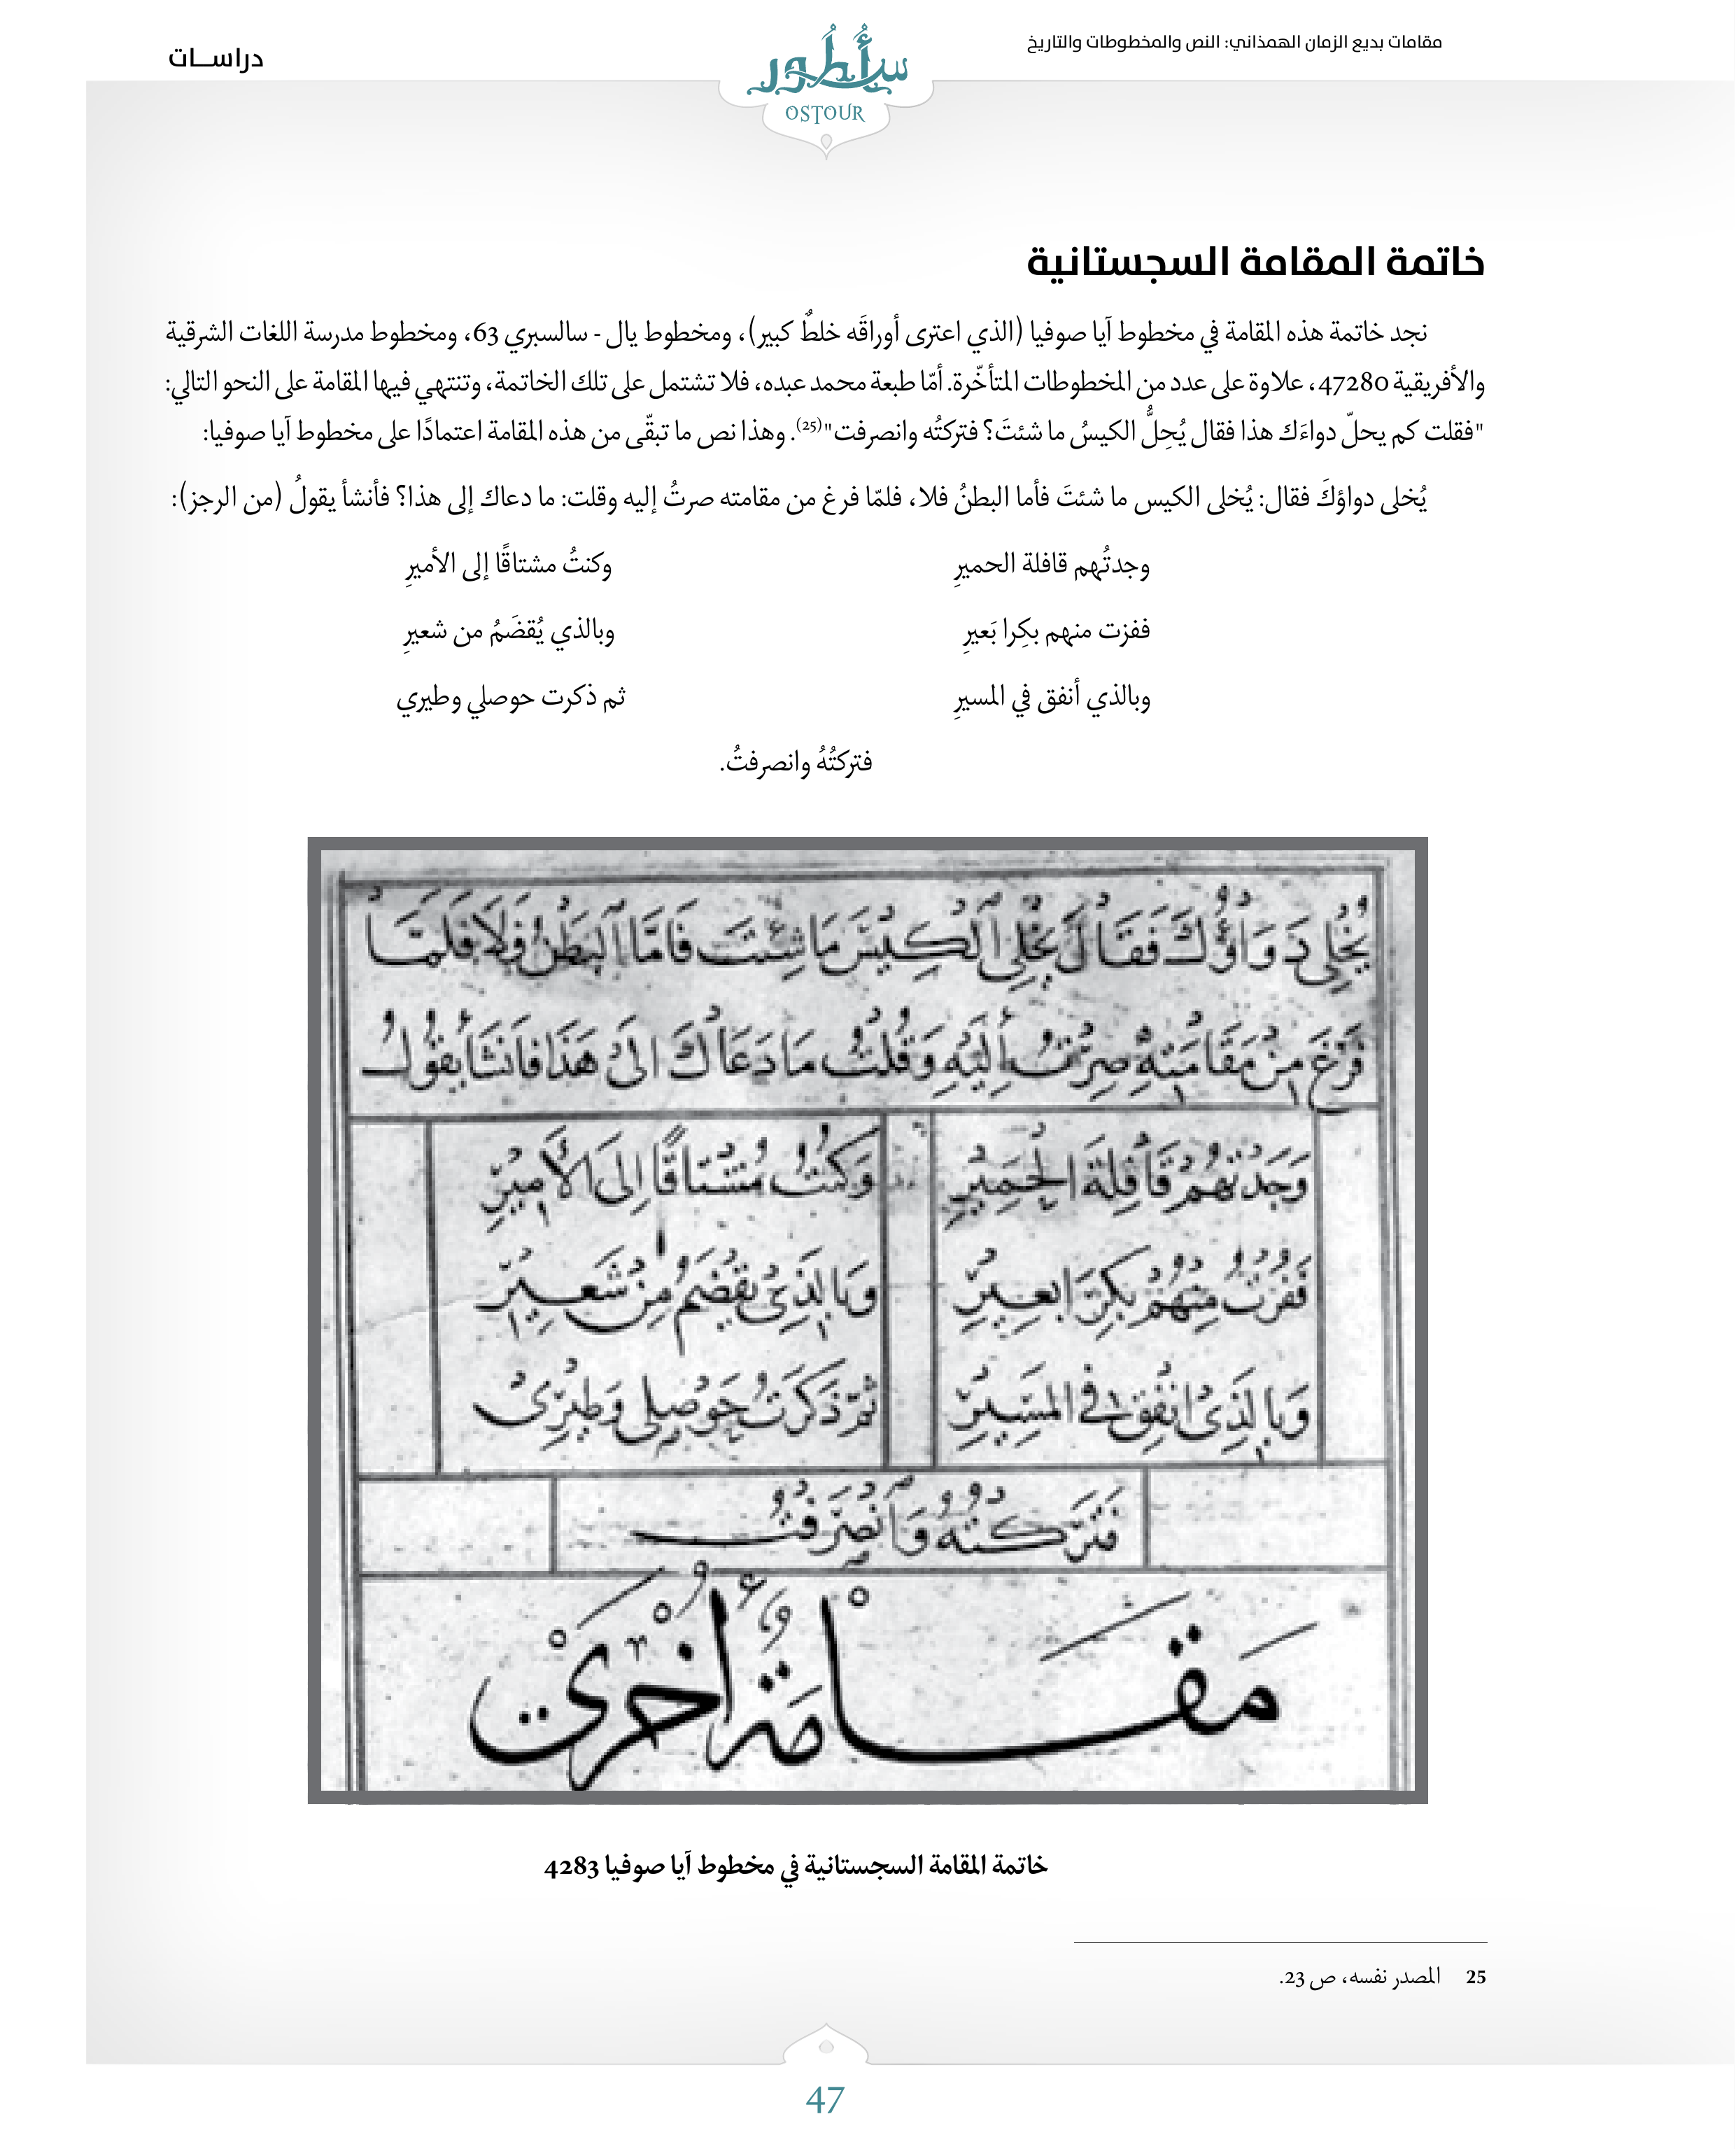 مقامات بديع الزمان الهمذاني: النص والمخطوطات والتاريخ
أسطور
OSTOUR
دراســات
خاتمة المقامة السجستانية
نجد خاتمة هذه المقامة في مخطوط آيا صوفيا (الذي اعترى أوراقَه خلطٌ كبير)، ومخطوط يال - سالسبري 63، ومخطوط مدرسة اللغات الشرقية
والأفريقية 47280، علاوة على عدد من المخطوطات المتأخّرة. أمّا طبعة محمد عبده، فلا تشتمل على تلك الخاتمة، وتنتهي فيها المقامة على النحو التالي:
"فقلت كم يحلّ دواءَك هذا فقال يُحِلُّ الكيسُ ما شئتَ؟ فتركتُه وانصرفت"(25). وهذا نص ما تبقّى من هذه المقامة اعتمادًا على مخطوط آيا صوفيا:
يُخلى دواؤكَ فقال: يُخلى الكيس ما شئتَ فأما البطنُ فلا، فلمّا فرغ من مقامته صرتُ إليه وقلت: ما دعاك إلى هذا؟ فأنشأ يقولُ (من الرجز):
وجدتُهم قافلة الحميرِ وكنتُ مشتاقًا إلى الأميرِ
ففزت منهم بكِرا بَعيرِ وبالذي يُقضَمُ من شعيرِ
وبالذي أنفق في المسيرِ ثم ذكرت حوصلي وطيري
فتركتُهُ وانصرفتُ.
يُخْلِى دَوَاؤُكَ فَقَالَ يُخْلِى الْكِيْسَ مَا شِئْتَ فَامَّا الْبَطْنُ فَلَا فَلَمَّا
فَرَغَ مِنْ مَقَامَتِهِ صِرْتُ إِلَيْهِ وَقُلْتُ مَا دَعَاكَ الىٰ هَذَا فَانْشَأَ يَقُولُ
وَجَدْتُهُمْ قَافِلَةَ الْحَمِيْرِ وَكُنْتُ مُشْتَاقًا اِلَى الْأَمِيْرِ
فَفُزْتُ مِنْهُمْ بِكِرَا بَعِيْرِ وَبِالَّذِىْ يُقْضَمُ مِنْ شَعِيْرِ
وَبِالَّذِىْ انْفِقَ فِي الْمَسِيْرِ ثُمَّ ذَكَرْتُ حَوْصِلِى وَطَيْرِىْ
فَتَرَكْتُهُ وَانْصَرَفْتُ
مَقَــامَةٌ أُخْرَىْ
خاتمة المقامة السجستانية في مخطوط آيا صوفيا 4283
25 المصدر نفسه، ص 23.
47